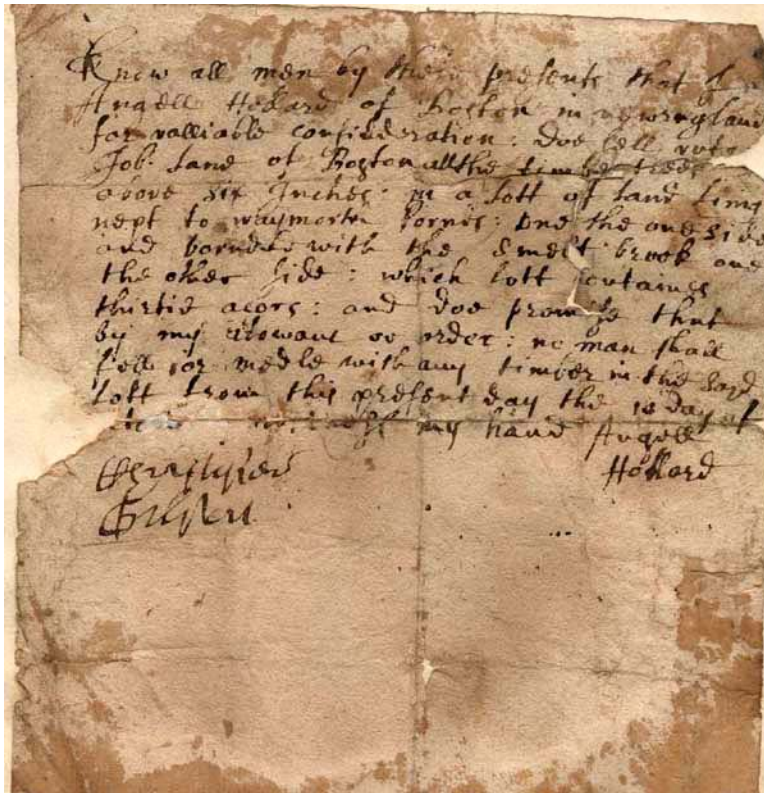 Know all men by these presents that I
Angell Hollard of Boston in newengland
for valliable consideration: doe sell unto
Job: Lane of Boston all the timber trees
above six Inches: in a lott of land lying
next to: one the one side
and with the brook one
the other side: which lott containes
thirtie acors: and doe promise that
by my alowanc or order: no man shall
fell or medle with any timber in the said
lott from this present day the 10 day of
witness my hand Angell
Hollard